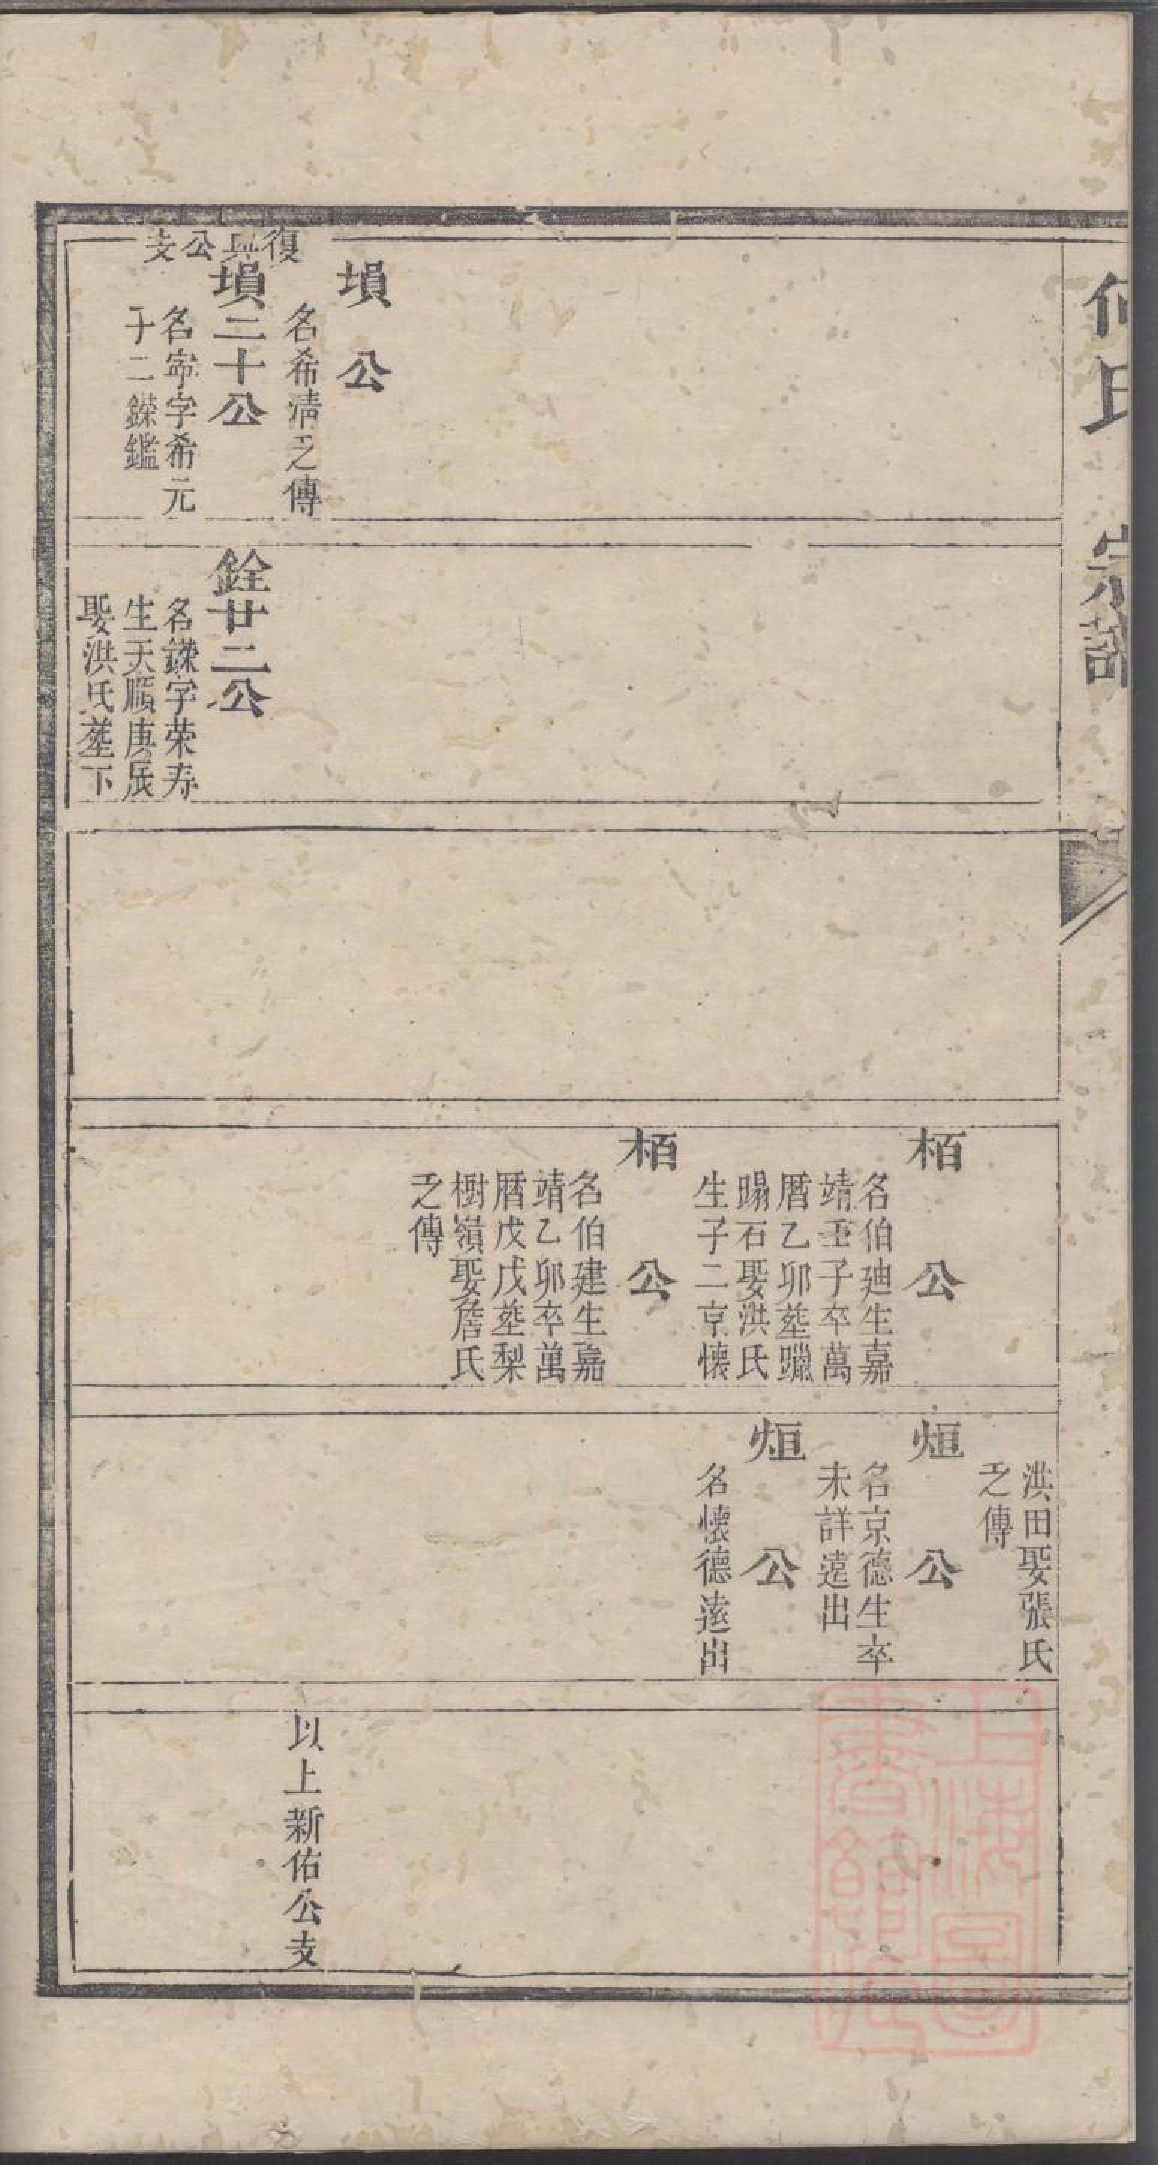 何氏宗譜
塤公
名希清乏傳
復興公支
塤二十公
名寧字希元
子二鑅鑑
銓廿二公
名鑅字荣寿
生天順庚辰
娶洪氏塟下
栢公
名伯廸生嘉
靖壬子卒萬
曆乙卯塟躐
蹋石娶洪氏
生子二京懷
栢公
名伯建生嘉
靖乙卯卒萬
曆戊戌塟梨
樹嶺娶詹氏
乏傳
洪田娶張氏
乏傳
烜公
名京德生卒
未詳遠出
烜公
名懷德遠出
以上新佑公支
上海圖書館藏